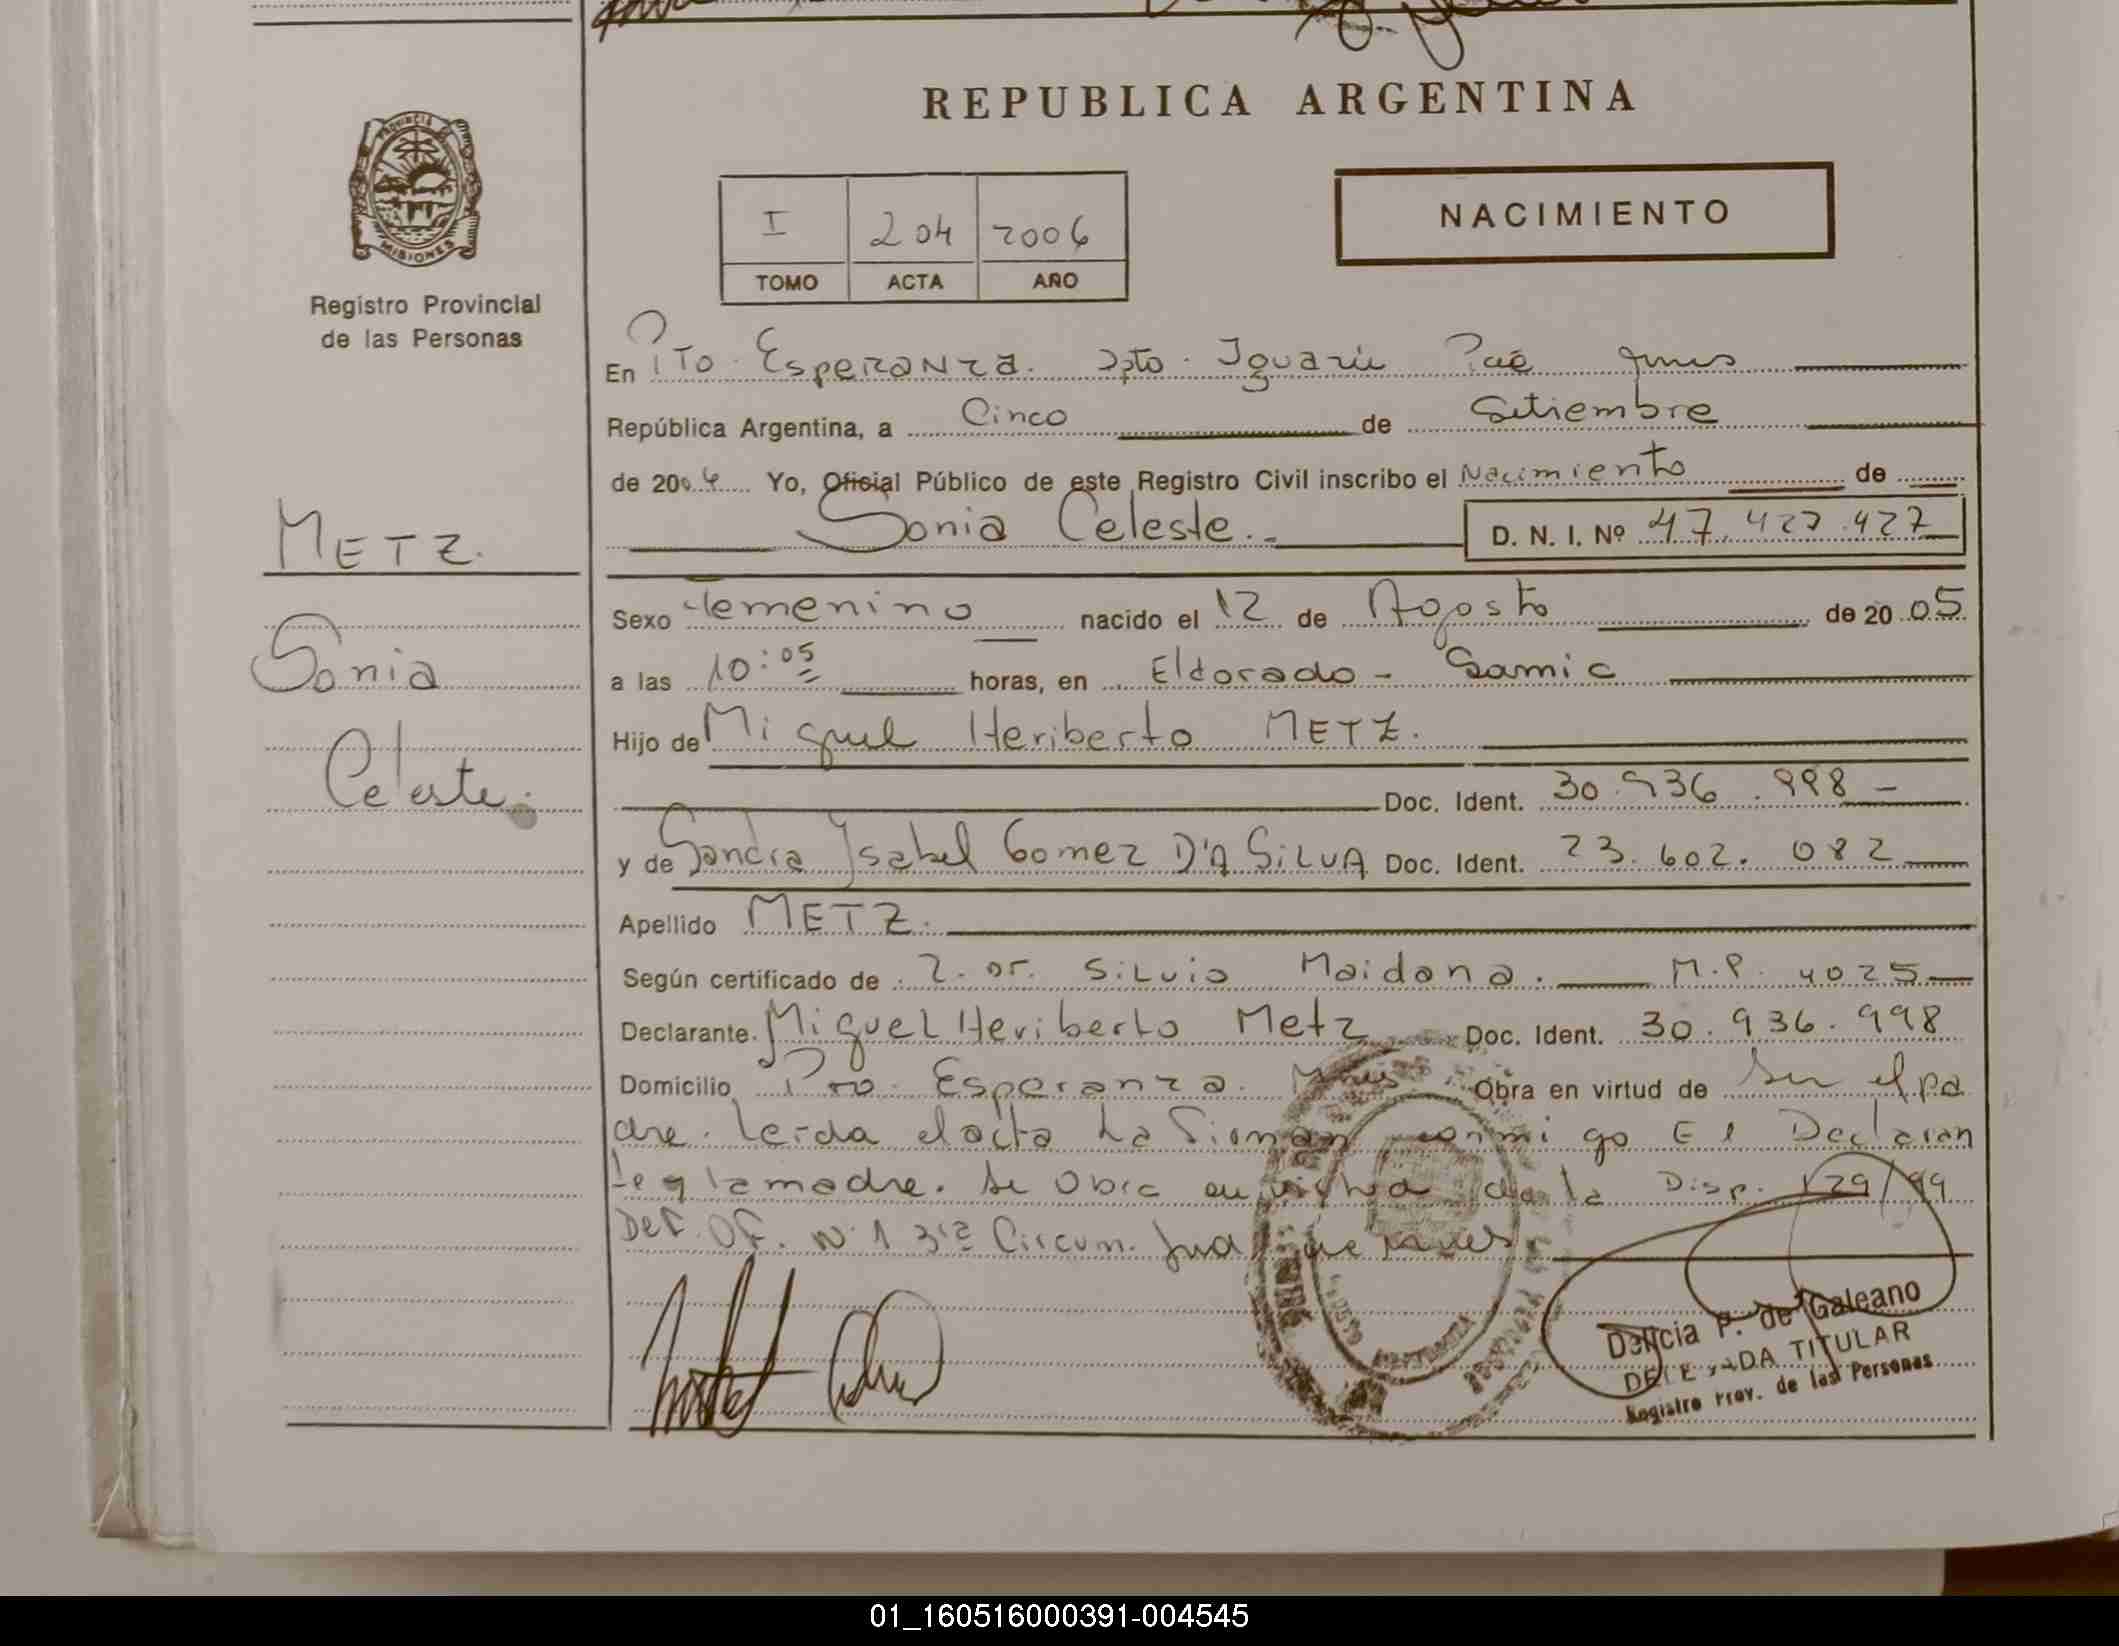 REPUBLICA ARGENTINA
PROVINCIA DE
MISIONES
Registro Provincial
de las Personas
I 204 2006
TOMO ACTA AÑO
NACIMIENTO
En Pto. Esperanza. Dpto. Iguazú
República Argentina, a Cinco de Setiembre
de 200 Yo, Oficial Público de este Registro Civil inscribo el Nacimiento de
Sonia Celeste.- D. N. I. Nº 47.427.427
METZ.
Sonia
Celeste.
Sexo Femenino nacido el 12 de Agosto de 20 05
a las 10:05 horas, en Eldorado - Samic
Hijo de Miguel Heriberto METZ.
Doc. Ident. 30.936.998-
y de Sandra Ysabel Gomez D'A SiLVA Doc. Ident. 23.602.082
Apellido METZ.
Según certificado de Silvio Maidana. M.P. 4025
Declarante. Miguel Heriberto Metz Doc. Ident. 30.936.998
Domicilio Pto. Esperanza. Mnes Obra en virtud de ser el pa
dre. Leida el acta La Firman conmigo El Declaran
te y la madre. Se Obra en virtud de la Disp. 129/99
Def. Of. Nº 1 3ra Circum. Jud
Delicia P. de Galeano
DELEGADA TITULAR
Registro Prov. de las Personas
01_160516000391-004545